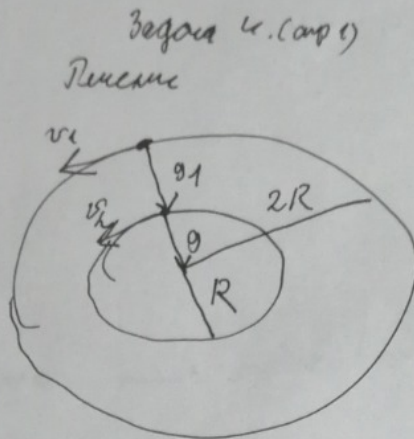 Задача 4. (стр 1)
Решение
v1
g1
v2
2R
g
R